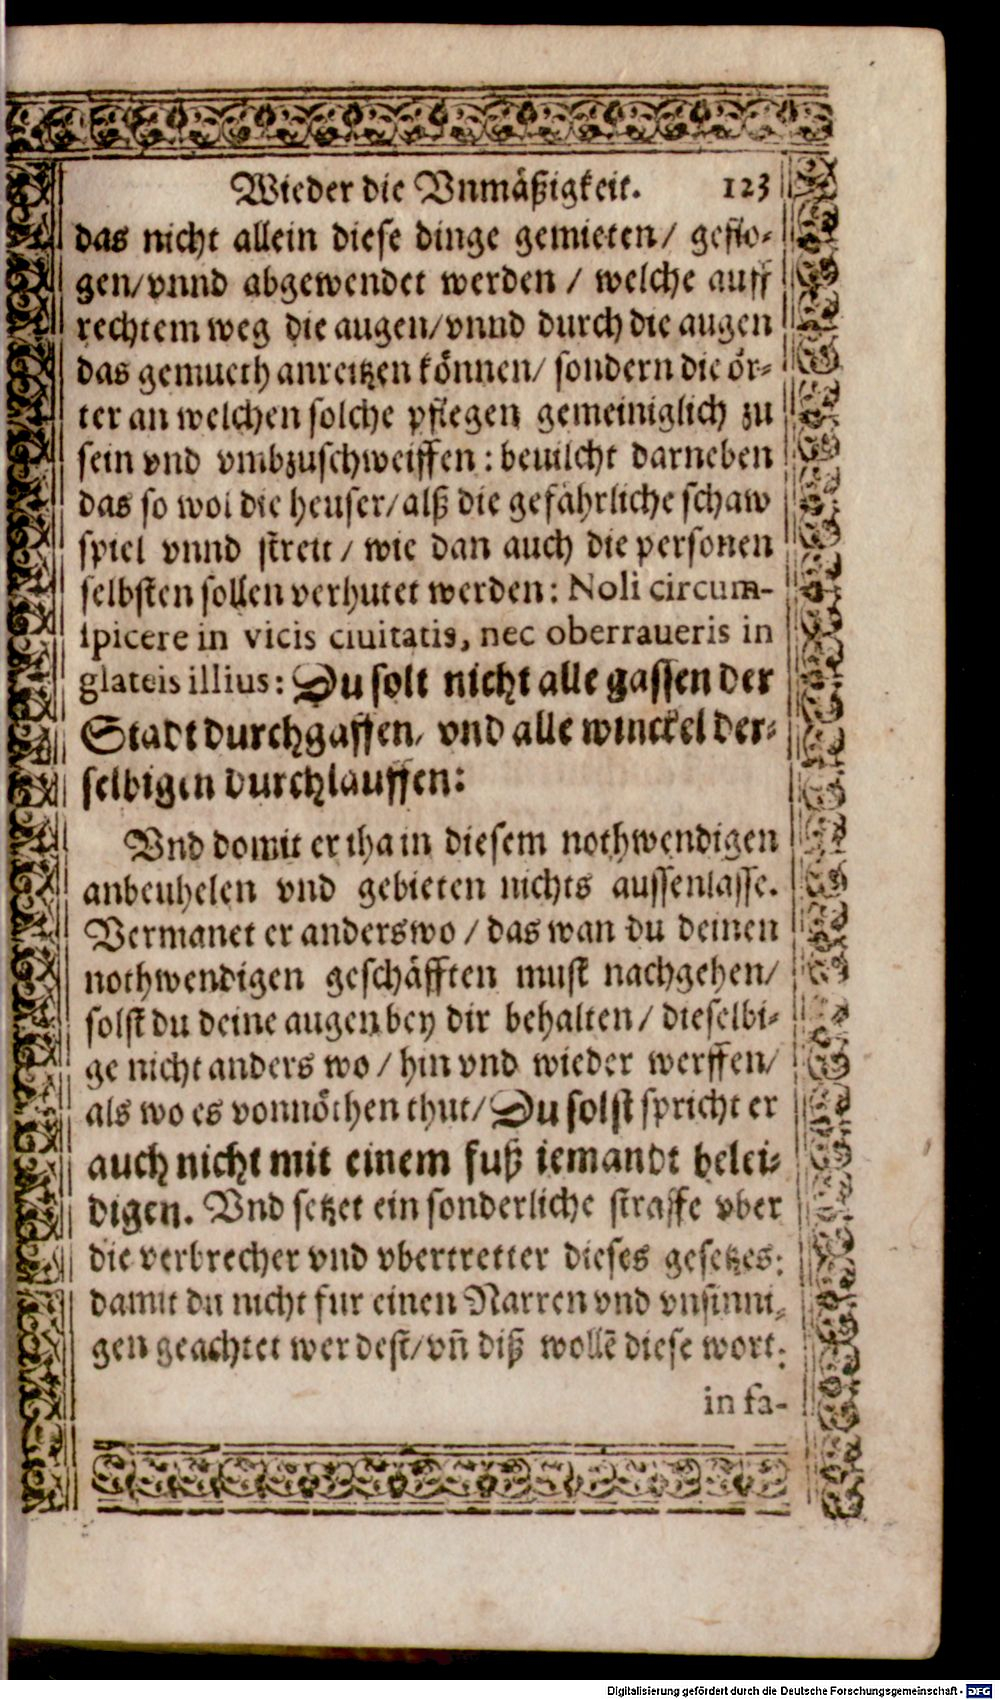 Wieder die Vnmäßigkeit. 123
das nicht allein diese dinge gemieten/ geflo-
gen/vnnd abgewendet werden / welche auff
rechtem weg die augen/vnnd durch die augen
das gemueth anreitzen können/ sondern die ör-
ter an welchen solche pflegen gemeiniglich zu
sein vnd vmbzuschweiffen : beuilcht darneben
das so wol die heuser/alß die gefährliche schaw
spiel vnnd streit / wie dan auch die personen
selbsten sollen verhutet werden: Noli circum-
spicere in vicis ciuitatis, nec oberraueris in
glateis illius: Du solt nicht alle gassen der
Stadt durchgaffen, vnd alle winckel der-
selbigen durchlauffen:
Vnd domit er iha in diesem nothwendigen
anbeuhelen vnd gebieten nichts aussenlasse.
Vermanet er anderswo / das wan du deinen
nothwendigen geschäfften must nachgehen/
solst du deine augen bey dir behalten/ dieselbi-
ge nicht anders wo / hin vnd wieder werffen/
als wo es vonnöthen thut/ Du solst spricht er
auch nicht mit einem fuß iemandt belei-
digen. Vnd setzet ein sonderliche straffe vber
die verbrecher vnd vbertretter dieses gesetzes:
damit du nicht fur einen Narren vnd vnsinni-
gen geachtet werdest/vñ diß wollē diese wort:
in fa-
Digitalisierung gefördert durch die Deutsche Forschungsgemeinschaft - DFG